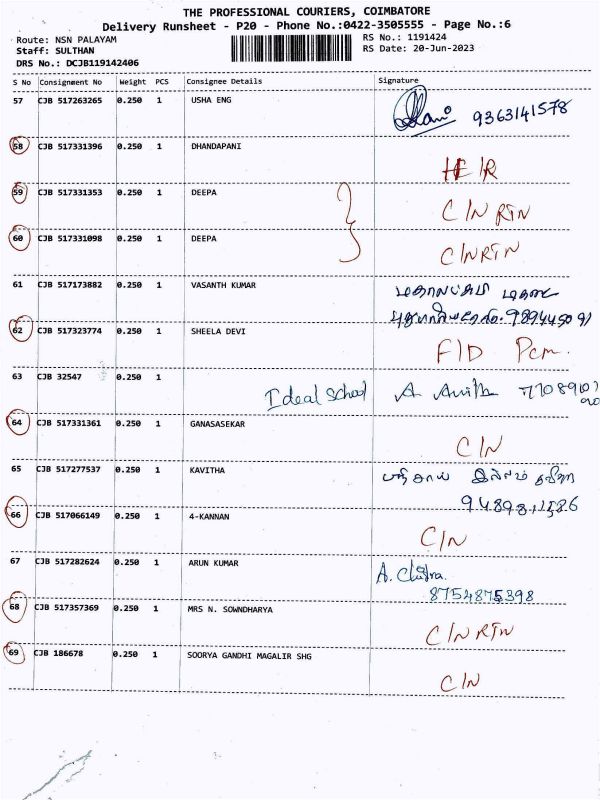 THE PROFESSIONAL COURIERS, COIMBATORE
Delivery Runsheet - P20 - Phone No.:0422-3505555 - Page No.:6
Route: NSN PALAYAM RS No.: 1191424
Staff: SULTHAN RS Date: 20-Jun-2023
DRS No.: DCJB119142406
S No Consignment No Weight PCS Consignee Details Signature
57 CJB 517263265 0.250 1 USHA ENG 9363141578
58 CJB 517331396 0.250 1 DHANDAPANI
59 CJB 517331353 0.250 1 DEEPA C/N RTN
60 CJB 517331098 0.250 1 DEEPA C/NRTN
61 CJB 517173882 0.250 1 VASANTH KUMAR
62 CJB 517323774 0.250 1 SHEELA DEVI F/D Pcm.
63 CJB 32547 0.250 1 Ideal School A.
64 CJB 517331361 0.250 1 GANASASEKAR C/N
65 CJB 517277537 0.250 1 KAVITHA
66 CJB 517066149 0.250 1 4-KANNAN C/N
67 CJB 517282624 0.250 1 ARUN KUMAR A. Chitra.
8754875398
68 CJB 517357369 0.250 1 MRS N. SOWNDHARYA C/NRTN
69 CJB 186678 0.250 1 SOORYA GANDHI MAGALIR SHG C/N